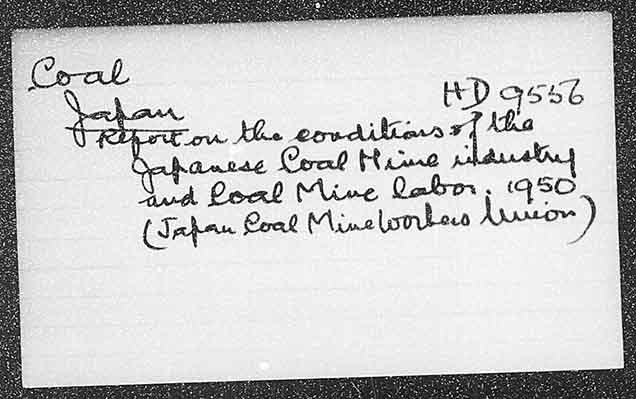 Coal
HD 9556
Japan
Report on the conditions of the
Japanese Coal Mine industry
and Coal Mine labor. 1950
(Japan Coal Mine Workers Union)